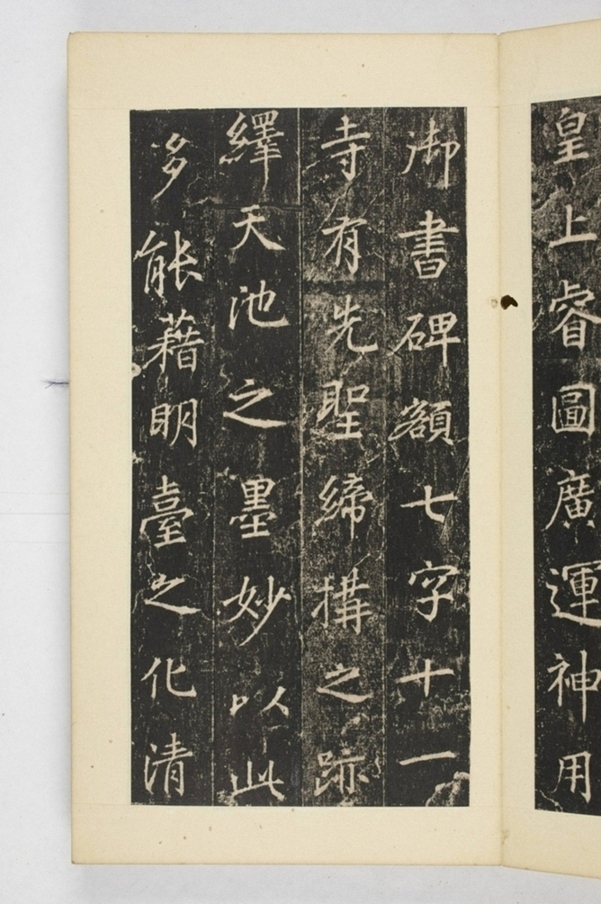 皇上睿圖廣運神用
御書碑額七字十一
寺有先聖締搆之跡
繹天池之墨妙以此
多能藉明臺之化清